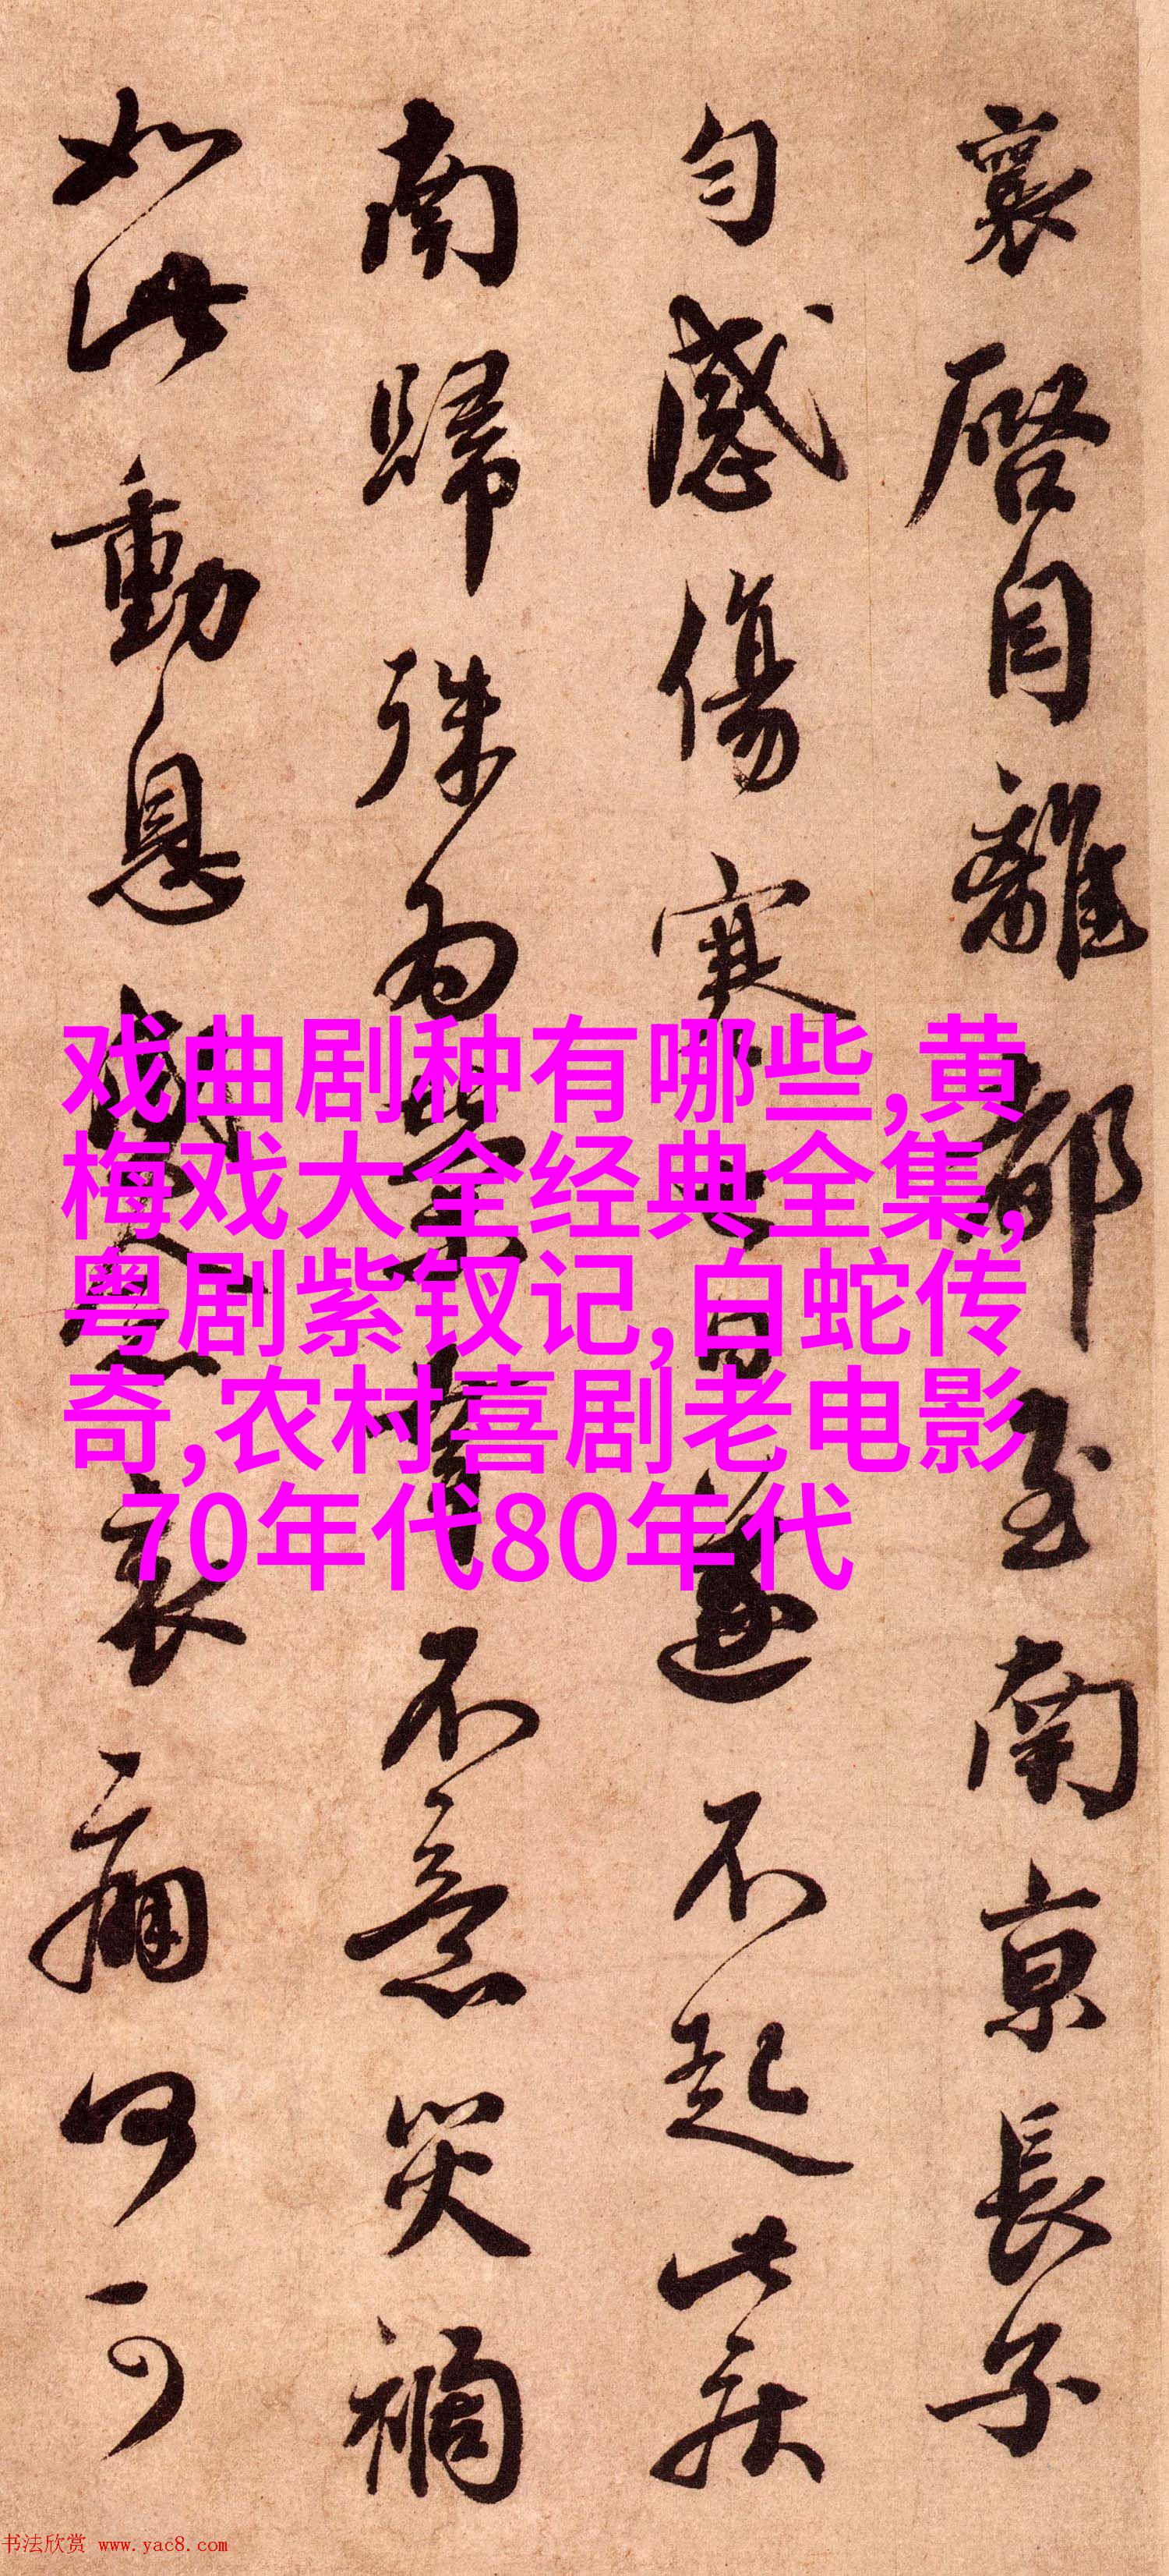 襄啓自離都至南京長子
勻感傷寒七日遂不起此疾
南歸殊為榮幸不意災禍
如此動息感念哀痛何可
戏曲剧种有哪些,黄
梅戏大全经典全集,
粤剧紫钗记,白蛇传
奇,农村喜剧老电影
70年代80年代
书法欣赏 www.yac8.com